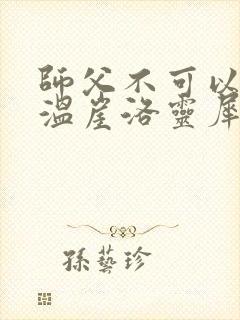 師父不可以
溫崖洛靈犀
孫藝珍